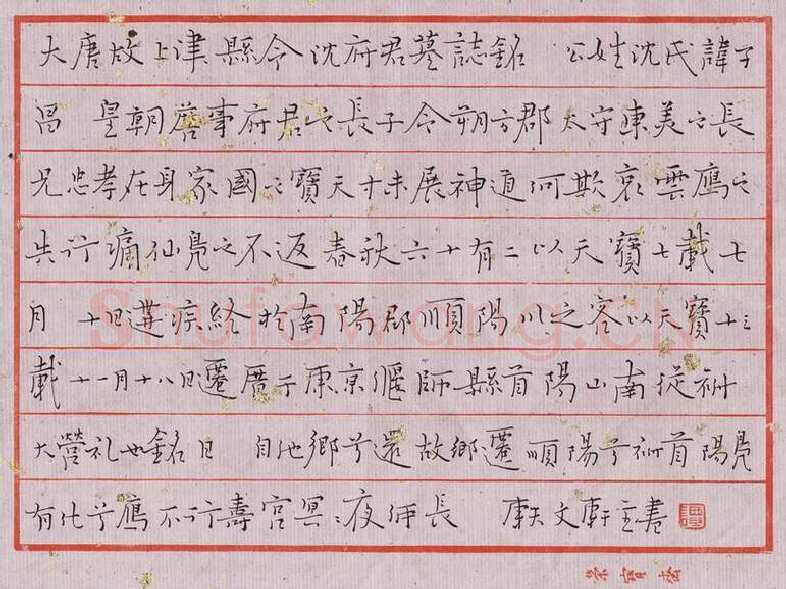 大唐故上津縣令沈府君墓誌銘 公姓沈氏諱子
昌 皇朝詹事府君之長子今朔方郡太守東美之長
兄忠孝在身家國之寶天才未展神道何欺哀雲鴈之
失行痛仙鳧之不返春秋六十有二以天寶七載七
月 十日遘疾終於南陽郡順陽川之客以天寶十三
載十一月十八日遷厝于東京偃師縣首陽山南從祔
大塋礼也銘曰 自他鄉兮還故鄉遷順陽兮祔首陽鳧
有化兮鴈不行壽宮冥々夜何長 文軒主書
榮寶斋